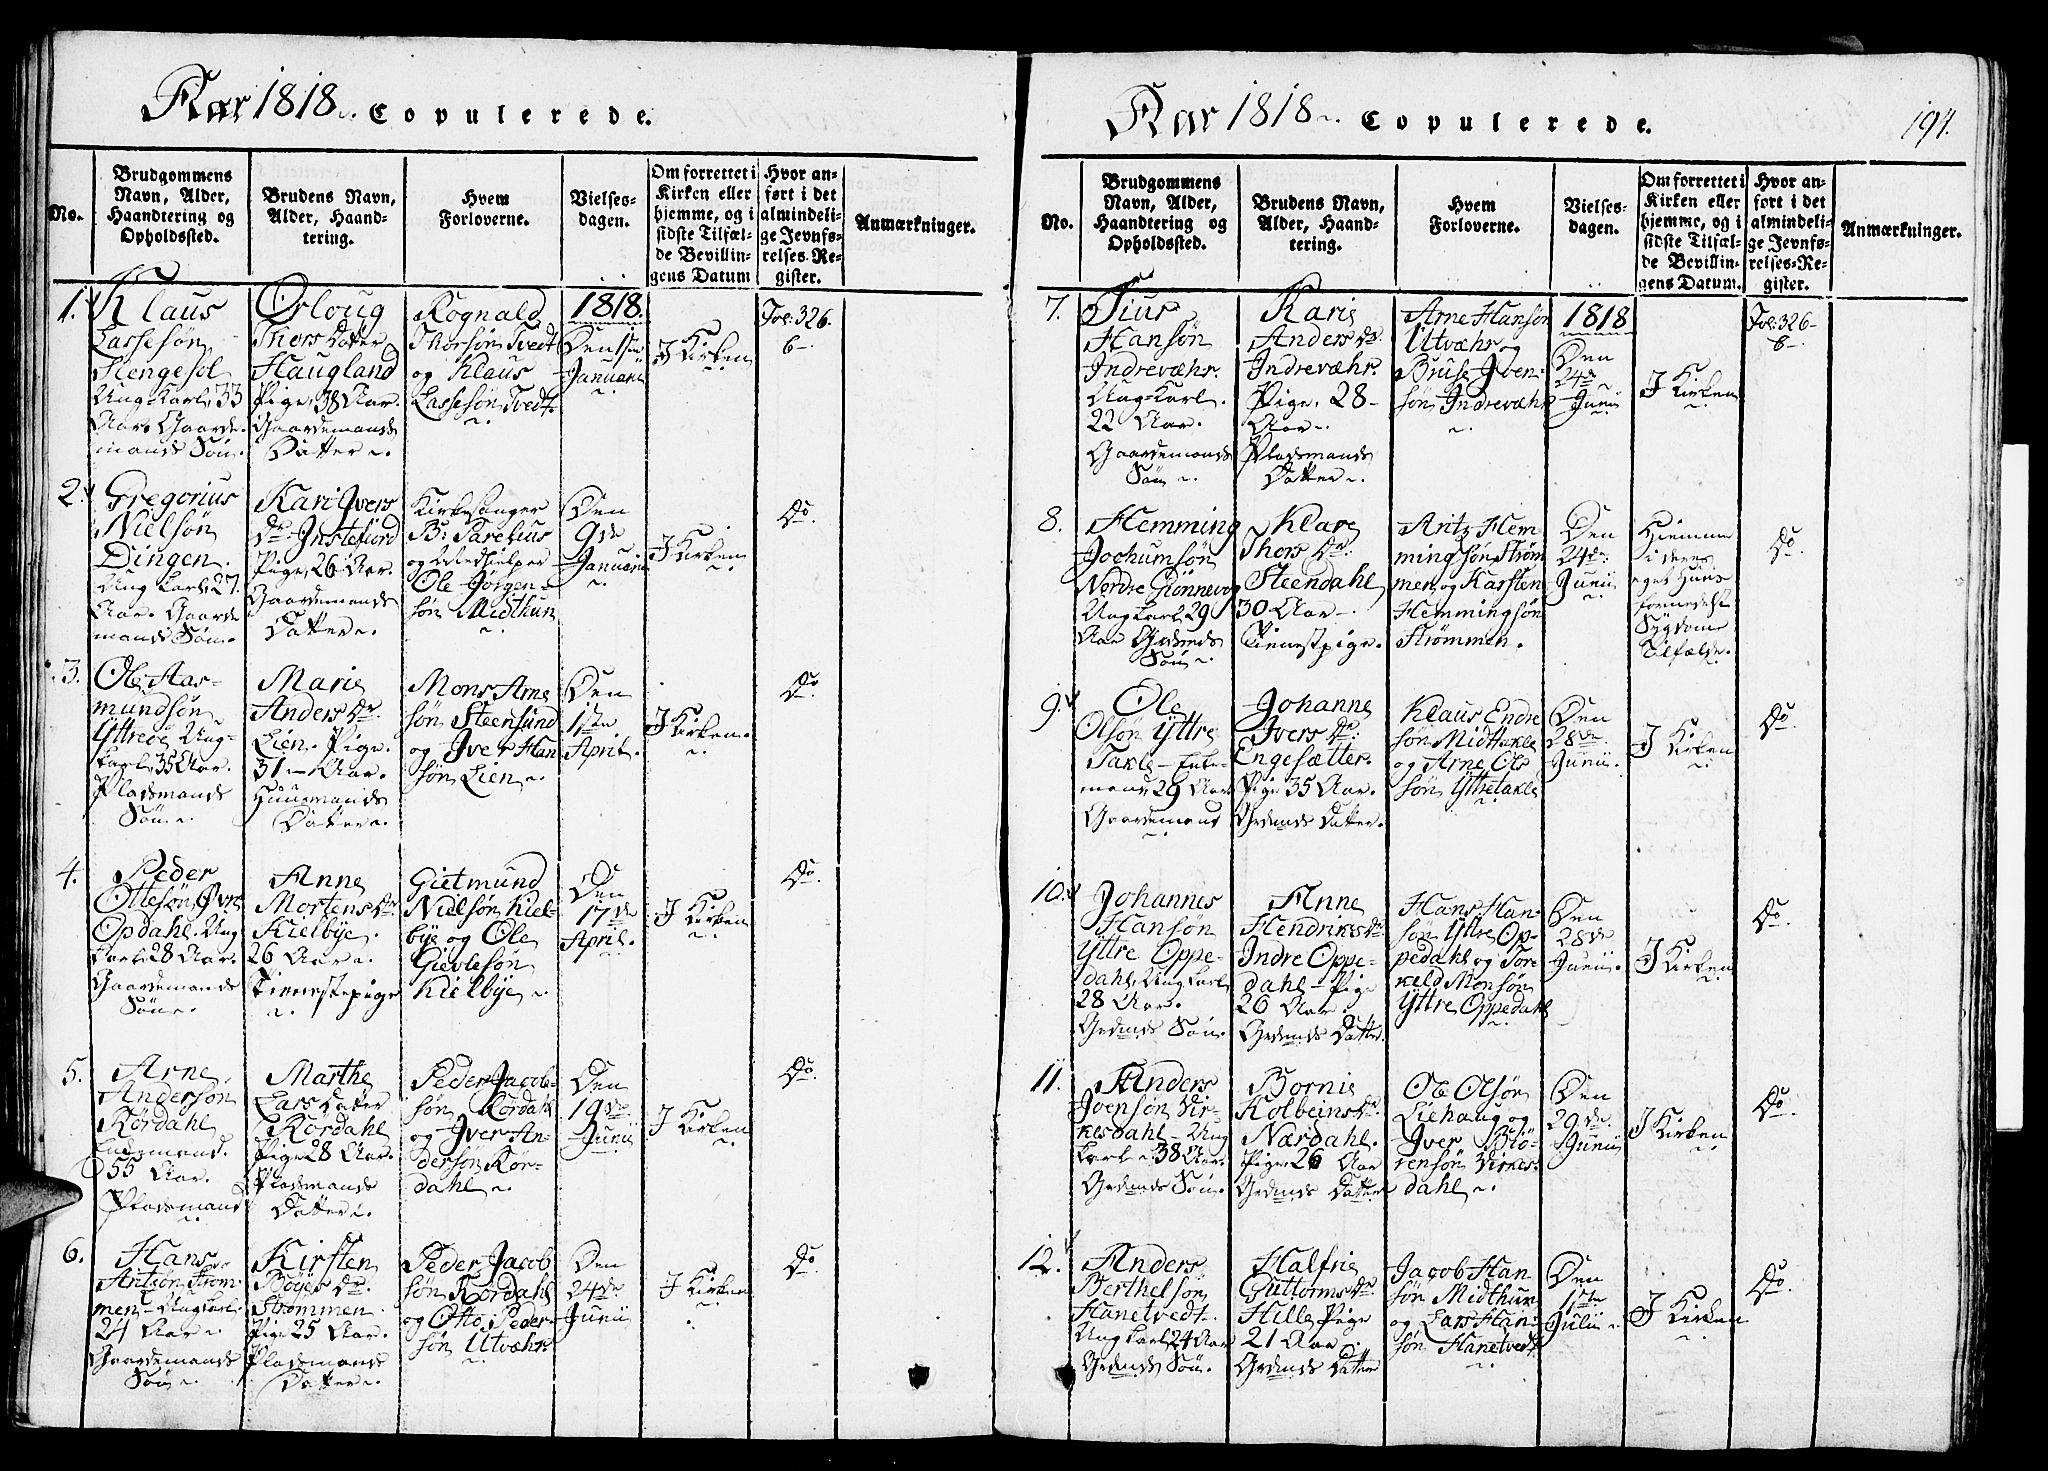 Aar 1818. Copulerede.
No.
Brudgommens
Navn, Alder,
Haandtering og
Opholdssted.
Brudens Navn,
Alder, Haand-
tering.
Hvem
Forloverne.
Vielses-
dagen.
Om forrettet i
Kirken eller
hjemme, og i
sidste Tilfæl-
de Bevillin-
gens Datum
Hvor an-
ført i det
almindeli-
ge Jevnfø-
relses-Re-
gister.
Anmærkninger.
1.
Klaus
Lassesøn
Ung Karl, 33
Aar. Gaarde-
mands Søn.
Thors Datter
Haugland
Pige, 38 Aar.
Gaardemands
Datter.
Rognald
Thorsøn Tvedt
og Klaus
Lassesøn Tvedt.
1818.
Januarii
I Kirken
Fol. 326.
6
2.
Gregorius
Nielsøn
Dingen.
Ung Karl, 27
Aar. Gaarde
mands Søn.
Kari Ivers
Dr. Instefiord
Pige, 26 Aar.
Gaardemands
Datter.
Kirkesanger
og Medhjelper
Ole Jørgen-
søn Midthun
Den
9de
Januarii
I Kirken
Do.
3.
Ole Aas-
mundsøn
Yttrede Ung-
karl, 35 Aar.
Pladsmands
Søn.
Marie
Anders Dr.
Lien. Pige.
31 Aar.
Huusmands
Datter.
Mons Arne
søn Steensund
og Iver Han
søn Lien
Den
1ste
April.
I Kirken.
Do.
4.
Peder
Ottesøn, Øvre
Opdahl. Ung
karl, 28 Aar.
Gaardemands
Søn.
Anne
Mortens Dr.
Kielbye.
26 Aar.
Tienestepige
Gietmund
Nielsøn Kiel-
bye og Ole
Gievlesøn
Kielbye
Den
17de
April.
I Kirken
Do.
5.
Arne
Andersøn
Rørdahl
Enkemand.
55 Aar.
Pladsmand
Marthe
Lars Datter
Rørdahl
Pige 28 Aar.
Pladsmands
Datter.
Peder Jacob-
søn Rørdahl
og Iver An-
dersøn Rør-
dahl
Den
19de
Junii
I Kirken
Do.
6.
Hans
Antsøn Strøm-
men Ungkarl.
24 Aar
Gaardemands
Søn
Kirsten
Bøyes Dr.
Strømmen
Pige 25 Aar.
Pladsmands
Datter
Peder Jacob
søn Rørdahl
og Otto Peder-
søn Utvæhr
Den
24de
Junii
I Kirken
Do.
Aar 1818. Copulerede.
194.
No.
Brudgommens
Navn, Alder,
Haandtering og
Opholdssted.
Brudens Navn,
Alder, Haand-
tering.
Hvem
Forloverne.
Vielses-
dagen.
Om forrettet i
Kirken eller
hjemme, og i
sidste Tilfæl-
de Bevillin-
gens Datum.
Hvor an-
ført i det
almindeli-
ge Jevnfø-
relses-Re-
gister.
Anmærkninger.
7.
Siur
Hansøn
Indrevæhr.
Ung Karl.
22 Aar.
Gaardemands
Søn
Karie
Anders Dr.
Indrevæhr.
Pige. 28
Aar
Pladsmands
Datter
Arne Hansøn
Utvæhr og
Bruse Iven-
søn Indrevæhr
1818
Den
24de
Junii
I Kirken
Fol. 326
6
8.
Hemming
Jochumsøn
Nordre Giønnevog
Ungkarl 29
Aar Grdmds
Søn
Klare
Thors Dr.
Steendahl
30 Aar
Tienestpige.
Antz Hem
mingsøn Strøm
men og Karsten
Hemmingsøn
Strømmen.
Den
24de
Junii
Hiemme
i deres
eget Huus
formedelst
Sygdoms
Tilfælde.
Do.
9.
Ole
Olsøn Yttre
Takle Enke-
mand 29 Aar
Gaardemand
Johanne
Ivers Dr.
Engesætter.
Pige 35 Aar.
Grdmds Datter.
Klaus Endre
søn Midtakle
og Arne Ole
søn Yttretakle
Den
28de
Junii
I Kirken
Do.
10.
Johannes
Hansøn
Yttre Oppe-
dahl, Ungkarl
28 Aar.
Grdmds Søn.
Anne
Hendriks Dr.
Indre Oppe-
dahl Pige
26 Aar.
Grdmds Datter.
Hans Han-
søn Yttre Op-
pedahl og Tor-
keld Monsøn
Yttre Oppedahl
Den
28de
Junii
I Kirken
Do.
11.
Anders
Joensøn Vir-
kesdahl Ung
karl 38 Aar.
Grdmds Søn.
Bornie
Kolbeins Dr.
Nærdahl.
Pige, 26 Aar
Grdmds Datter
Ole Olsøn
Liehaug og
Iver
rensøn Virkes-
dahl
Den
29de
Junii
I Kirken
Do.
12.
Anders
Berthelsøn
Hanetvedt.
Ungkarl 24 Aar
Grdmds Søn.
Halfrie
Guttorms Dr.
Helle Pige
21 Aar
Grdmds Datter
Jacob Han
søn Midthun
og Lars Han-
søn Hanetvedt
Den
11te
Julii
I Kirken
Do.